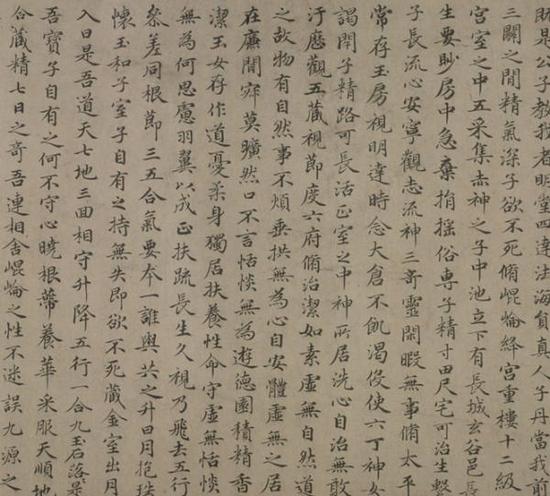 是公子教我者明堂四達法海負真人子丹當我前
三關之間精氣深子欲不死脩崐崘絳宮重樓十二級
宮室之中五采集赤神之子中池立下有長城玄谷邑長
生要眇房中急棄捐搖俗専子精寸田尺宅可治生繫
子長流心安寧觀志流神三奇靈閑暇無事脩太平
常存玉房視明達時念大倉不飢渴伇使六丁神女
謁閉子精路可長活正室之中神所居洗心自治無敢
汙歷觀五藏視節度六府脩治潔如素虛無自然道
之故物有自然事不煩垂拱無為心自安體虛無之居
在廉間寂莫曠然口不言恬惔無為遊德園積精香
潔玉女存作道憂柔身獨居扶養性命守虛無恬惔
無為何思慮羽翼以成正扶疏長生久視乃飛去五行
參差同根節三五合氣要本一誰與共之升日月抱珠
懷玉和子室子自有之持無失即欲不死藏金室出月
入日是吾道天七地三回相守升降五行一合九玉石落是
吾寶子自有之何不守心曉根蔕養華采服天順地
合藏精七日之奇吾連相舍崐崘之性不迷誤九源之